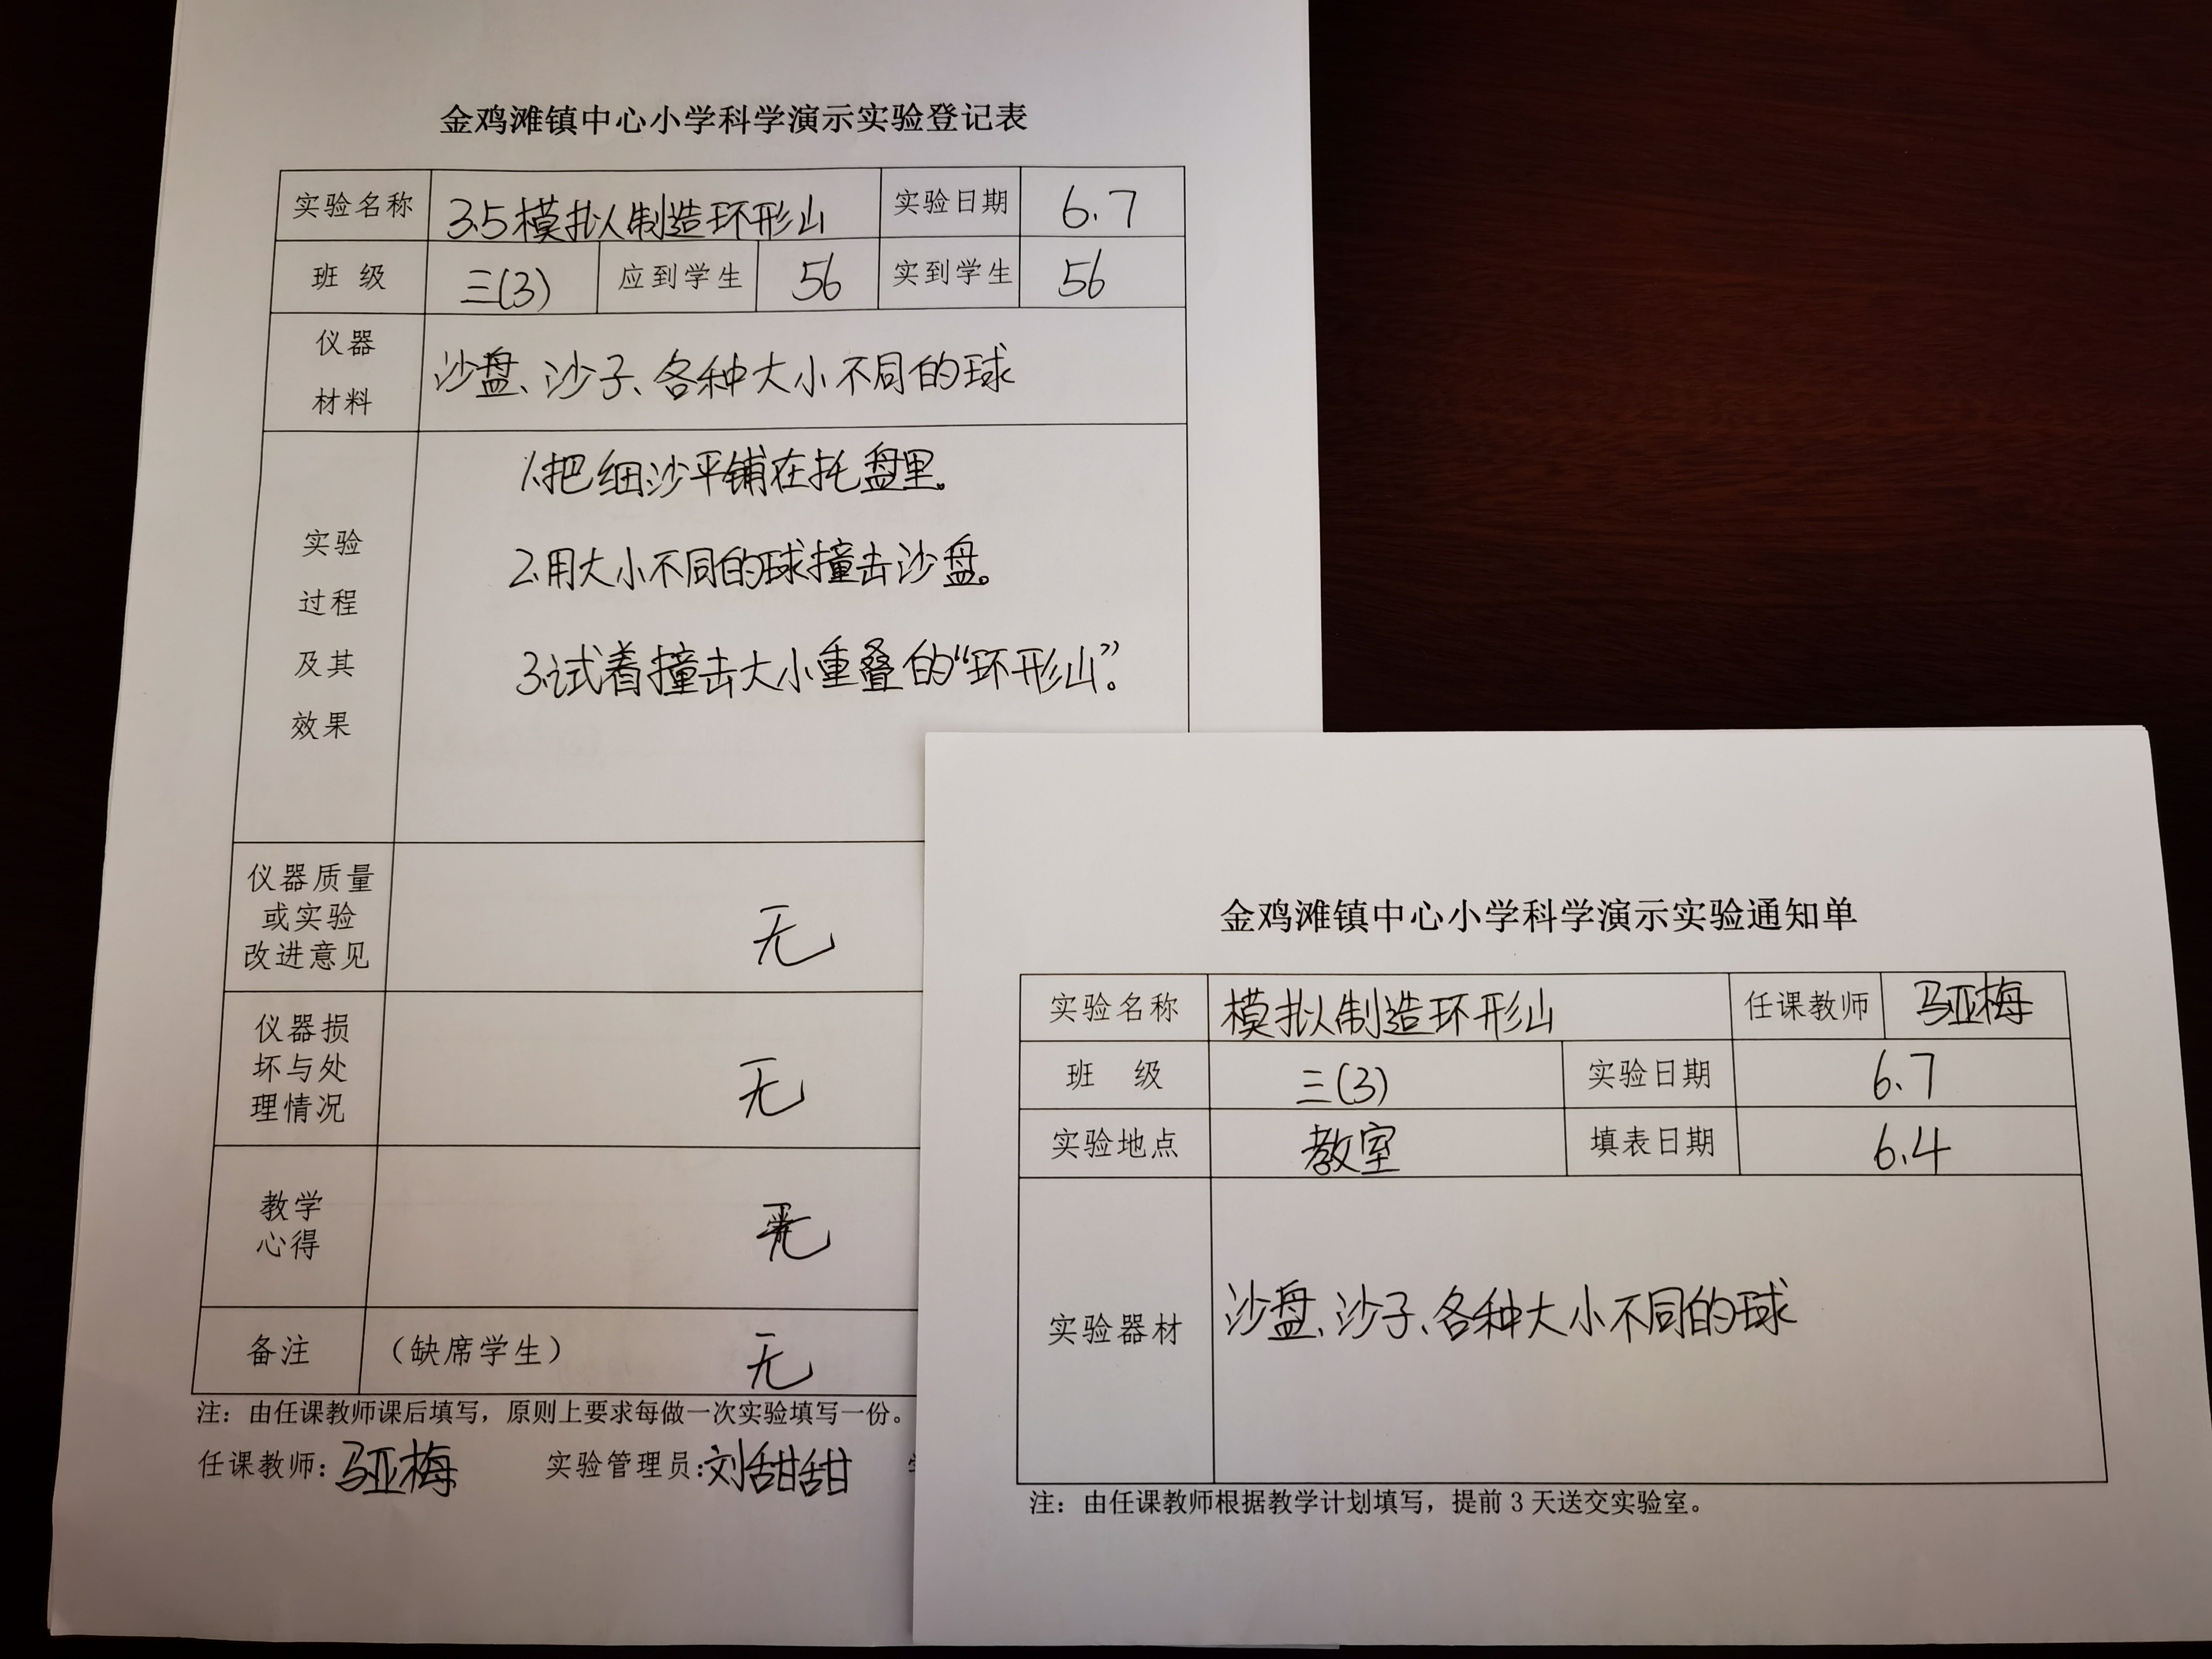 金鸡滩镇中心小学科学演示实验登记表
实验名称 3.5模拟制造环形山 实验日期 6.7
班 级 三(3) 应到学生 56 实到学生 56
仪器
材料
沙盘、沙子、各种大小不同的球
实验
过程
及其
效果
1.把细沙平铺在托盘里。
2.用大小不同的球撞击沙盘。
3.试着撞击大小重叠的“环形山”。
仪器质量
或实验
改进意见
无
仪器损
坏与处
理情况
无
教学
心得
无
备注 （缺席学生） 无
注：由任课教师课后填写，原则上要求每做一次实验填写一份。
任课教师：马亚梅 实验管理员：刘甜甜
金鸡滩镇中心小学科学演示实验通知单
实验名称 模拟制造环形山 任课教师 马亚梅
班 级 三(3) 实验日期 6.7
实验地点 教室 填表日期 6.4
实验器材 沙盘、沙子、各种大小不同的球
注：由任课教师根据教学计划填写，提前 3 天送交实验室。